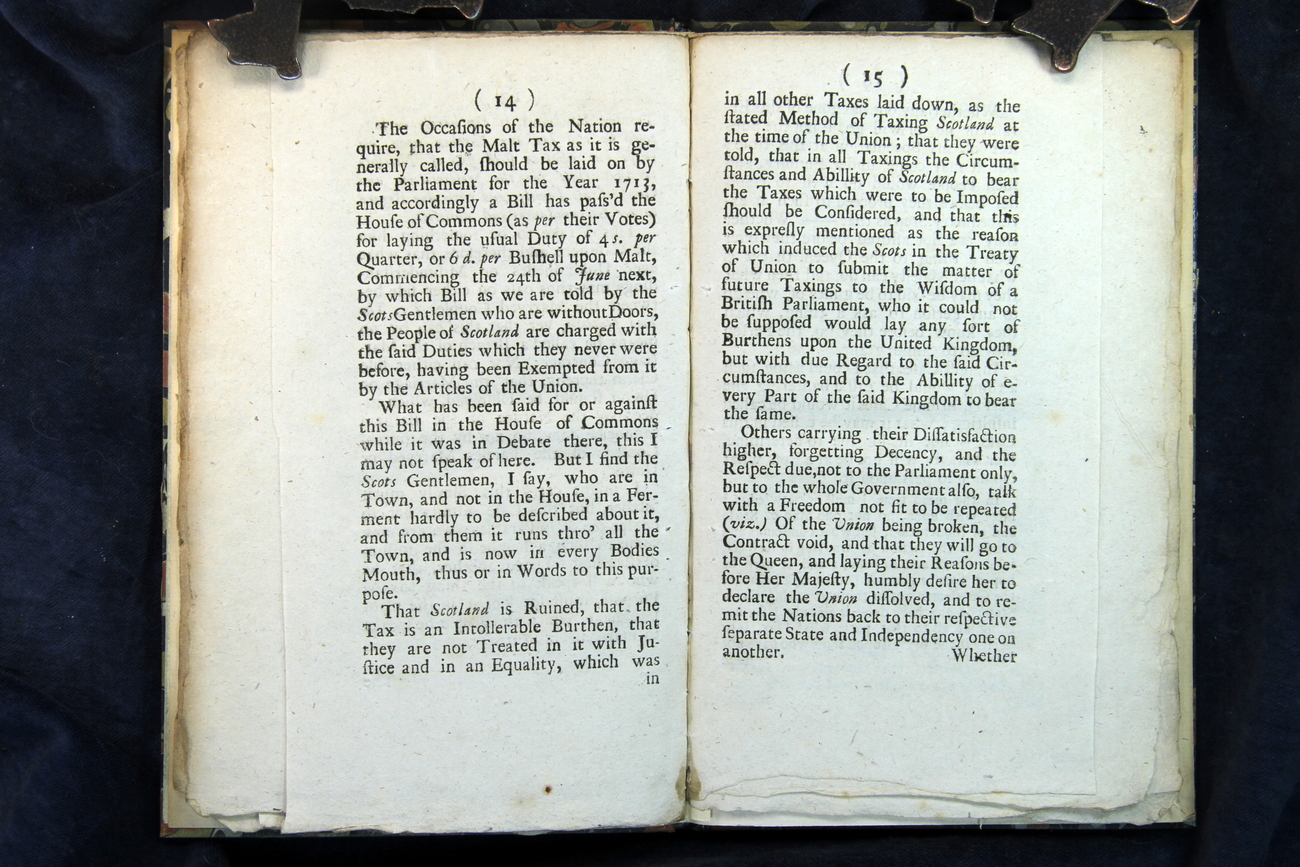 ( 14 )
The Occaſions of the Nation re-
quire, that the Malt Tax as it is ge-
nerally called, ſhould be laid on by
the Parliament for the Year 1713,
and accordingly a Bill has paſs'd the
Houſe of Commons (as per their Votes)
for laying the uſual Duty of 4 s. per
Quarter, or 6 d. per Buſhell upon Malt,
Commencing the 24th of June next,
by which Bill as we are told by the
Scots Gentlemen who are without Doors,
the People of Scotland are charged with
the ſaid Duties which they never were
before, having been Exempted from it
by the Articles of the Union.
What has been ſaid for or againſt
this Bill in the Houſe of Commons
while it was in Debate there, this I
may not ſpeak of here. But I find the
Scots Gentlemen, I ſay, who are in
Town, and not in the Houſe, in a Fer-
ment hardly to be deſcribed about it,
and from them it runs thro' all the
Town, and is now in every Bodies
Mouth, thus or in Words to this pur-
poſe.
That Scotland is Ruined, that the
Tax is an Intollerable Burthen, that
they are not Treated in it with Ju-
ſtice and in an Equality, which was
in
( 15 )
in all other Taxes laid down, as the
ſtated Method of Taxing Scotland at
the time of the Union ; that they were
told, that in all Taxings the Circum-
ſtances and Abillity of Scotland to bear
the Taxes which were to be Impoſed
ſhould be Conſidered, and that this
is expreſly mentioned as the reaſon
which induced the Scots in the Treaty
of Union to ſubmit the matter of
future Taxings to the Wiſdom of a
Britiſh Parliament, who it could not
be ſuppoſed would lay any ſort of
Burthens upon the United Kingdom,
but with due Regard to the ſaid Cir-
cumſtances, and to the Abillity of e-
very Part of the ſaid Kingdom to bear
the ſame.
Others carrying their Diſſatisfaction
higher, forgetting Decency, and the
Reſpect due,not to the Parliament only,
but to the whole Government alſo, talk
with a Freedom not fit to be repeated
(viz.) Of the Union being broken, the
Contract void, and that they will go to
the Queen, and laying their Reaſons be-
fore Her Majeſty, humbly deſire her to
declare the Union diſſolved, and to re-
mit the Nations back to their reſpective
ſeparate State and Independency one on
another.
Whether